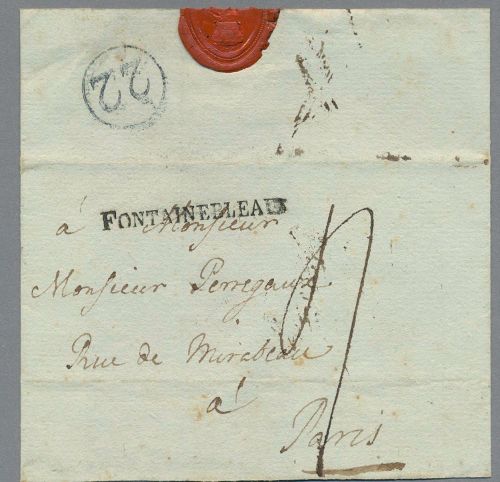 22
FONTAINEBLEAU
à Monsieur
Monsieur Perregaux
Rue de Mirabeau
à
Paris